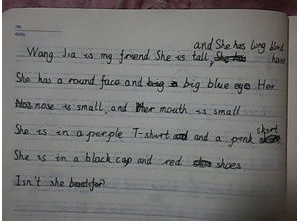 and She has long blond
Wang Jia is my friend She is tall, She has hair
She has a round face and big a big blue eyes Her
has nose is small, and Her mouth is small
She is in a purple T-shirt and and a pink skirt
She is in a black cap and red shoes
Isn't she